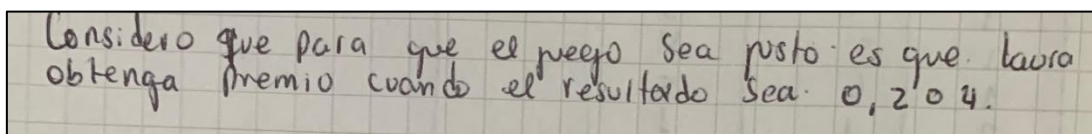 Considero que para que el juego sea justo es que. Laura
obtenga premio cuando el resultado sea. 0, 2 o 4.